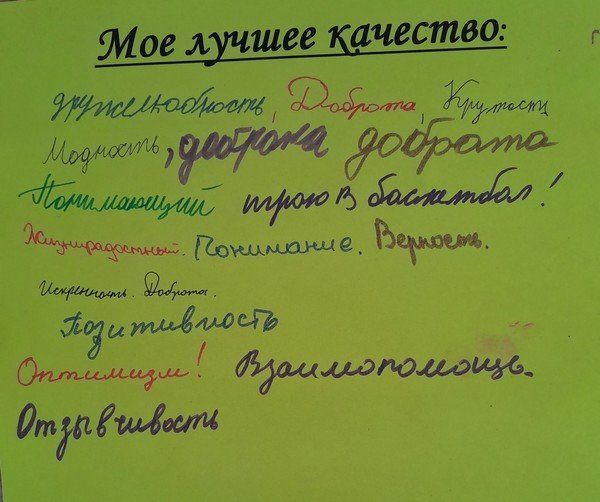 Мое лучшее качество:
дружелюбность, Доброта, Крутость
Модность, доброта добрата
Понимающий играю в баскетбол!
Жизнирадостный. Понимание. Верность.
Искренность. Доброта.
Позитивность
Оптимизм! Взаимопомощь.
Отзывчивость